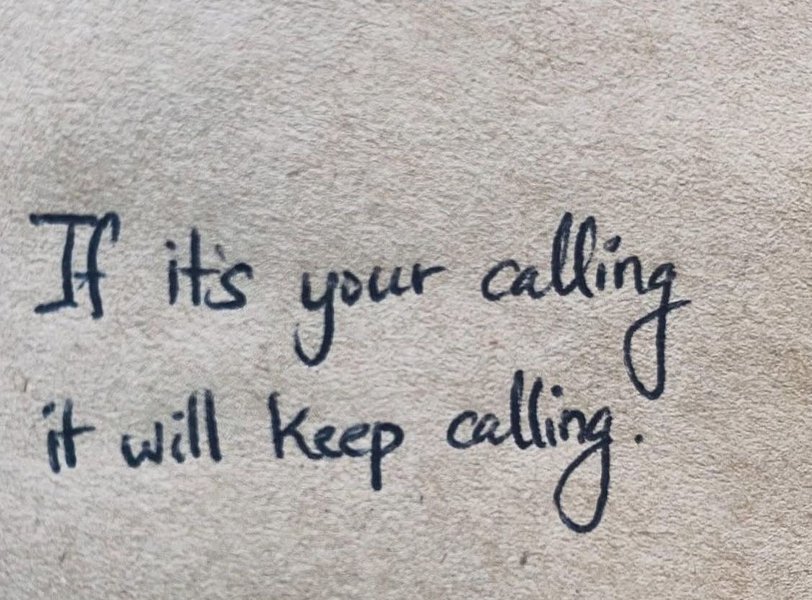 If it's your calling
it will keep calling.